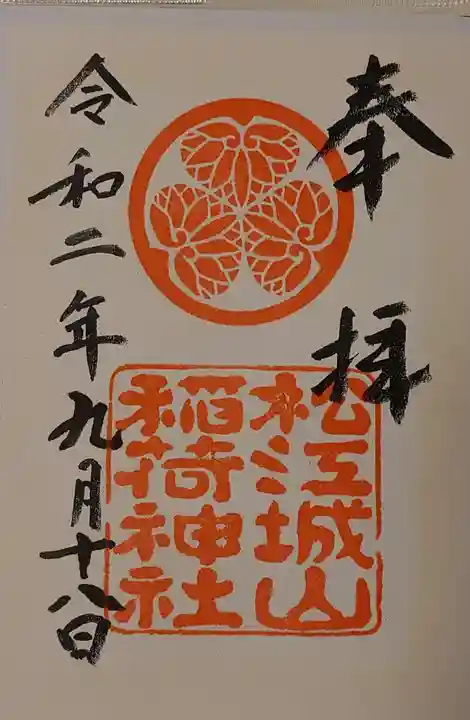 奉拝
松江城山
稲荷神社
令和二年九月十八日